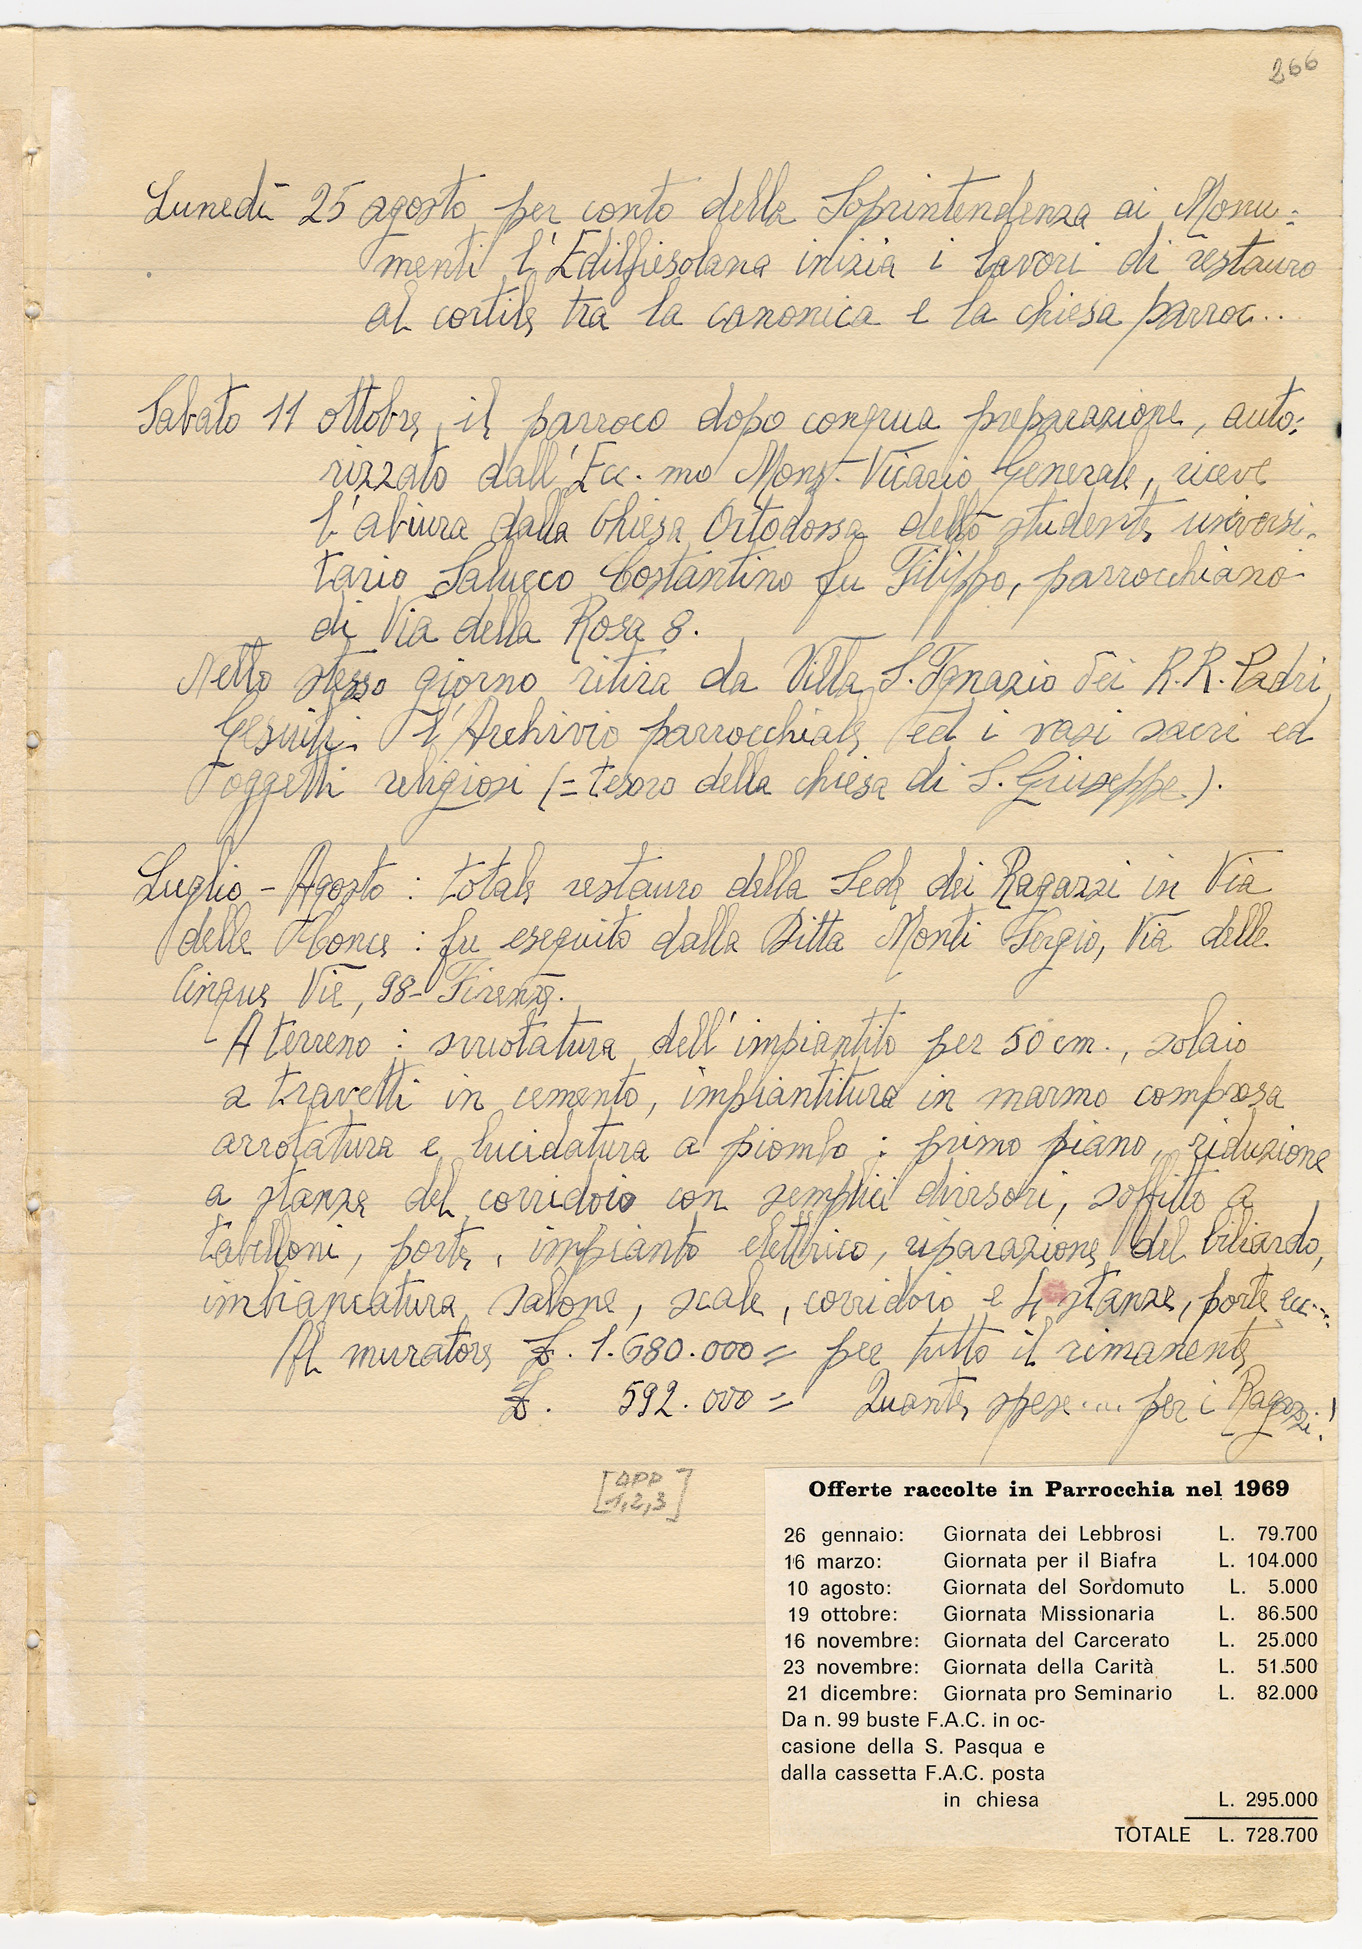 266
Lunedì 25 agosto per conto della Soprintendenza ai Monu-
menti l'Edilfiesolana inizia i lavori di restauro
al cortile tra la canonica e la chiesa parroc..
Sabato 11 ottobre, il parroco dopo congrua preparazione, auto:
rizzato dall'Ecc.mo Mons. Vicario Generale, riceve
l'abiura dalla Chiesa Ortodossa dello studente universi-
tario Salucco Costantino fu Filippo, parrocchiano
di Via della Rosa 8.
Nello stesso giorno ritira da Villa S. Ignazio dei R.R. Padri
Gesuiti l'Archivio parrocchiale ed i vasi sacri ed
oggetti religiosi (= tesoro della chiesa di S. Giuseppe).
Luglio - Agosto : totale restauro della Sede dei Ragazzi in Via
delle Conce : fu eseguito dalla Ditta Monti Sergio, Via delle
Cinque Vie, 98 - Firenze.
A terreno : svuotatura dell'impiantito per 50 cm., solaio
a travetti in cemento, impiantitura in marmo compresa
arrotatura e lucidatura a piombo ; primo piano, riduzione
a stanze del corridoio con semplici divisori, soffitto a
tabelloni, porte, impianto elettrico, riparazione del biliardo,
imbiancatura salone, scale, corridoio e 4 stanze, porte ecc...
Al muratore £. 1.680.000 = per tutto il rimanente
£. 592.000 = Quante spese.... per i Ragazzi!
[APP
1,2,3]
Offerte raccolte in Parrocchia nel 1969
26 gennaio: Giornata dei Lebbrosi L. 79.700
16 marzo: Giornata per il Biafra L. 104.000
10 agosto: Giornata del Sordomuto L. 5.000
19 ottobre: Giornata Missionaria L. 86.500
16 novembre: Giornata del Carcerato L. 25.000
23 novembre: Giornata della Carità L. 51.500
21 dicembre: Giornata pro Seminario L. 82.000
Da n. 99 buste F.A.C. in oc-
casione della S. Pasqua e
dalla cassetta F.A.C. posta
in chiesa L. 295.000
TOTALE L. 728.700